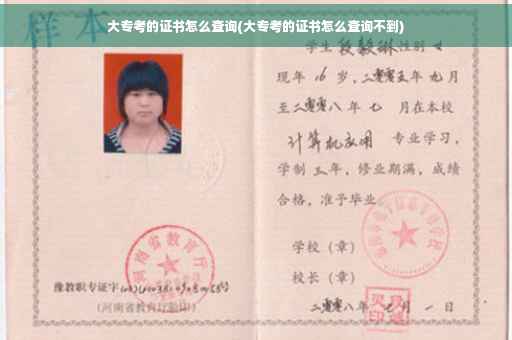 大专考的证书怎么查询(大专考的证书怎么查询不到)
样本
学生段毅琳性别女
现年16岁，二零零五年九月
至二零零八年七 月在本校
计算机应用 专业学习，
学制三年，修业期满，成绩
合格，准予毕业
学校（章）
校长（章）
二零零八年七月一日
河南省教育厅
豫教职专证字
（河南省教育厅验印）